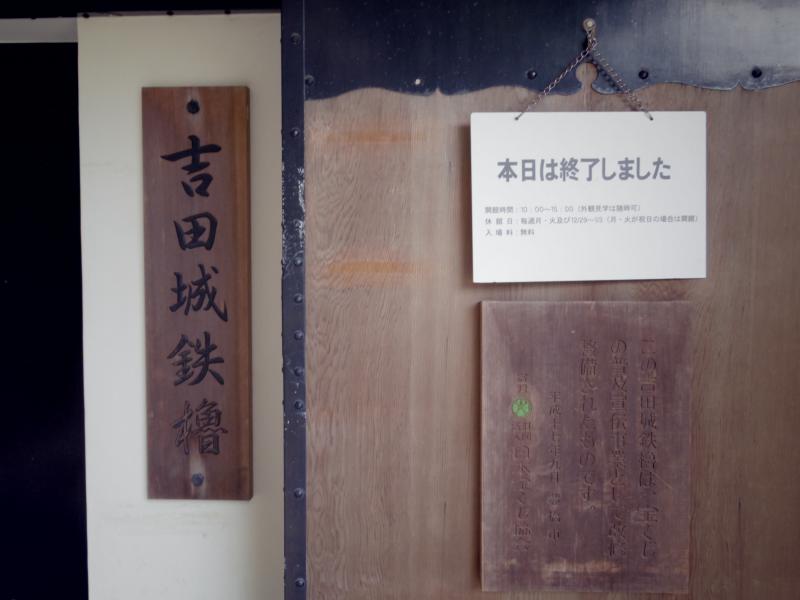 吉田城鉄櫓
本日は終了しました
開館時間：10：00～15：00（外観見学は随時可）
休 館 日：毎週月・火及び12/29～1/3（月・火が祝日の場合は開館）
入 場 料：無料
この吉田城鉄櫓は、宝くじ
の普及宣伝事業として改修
整備されたものです。
平成十七年九月 豊橋市
財団法人 日本宝くじ協会